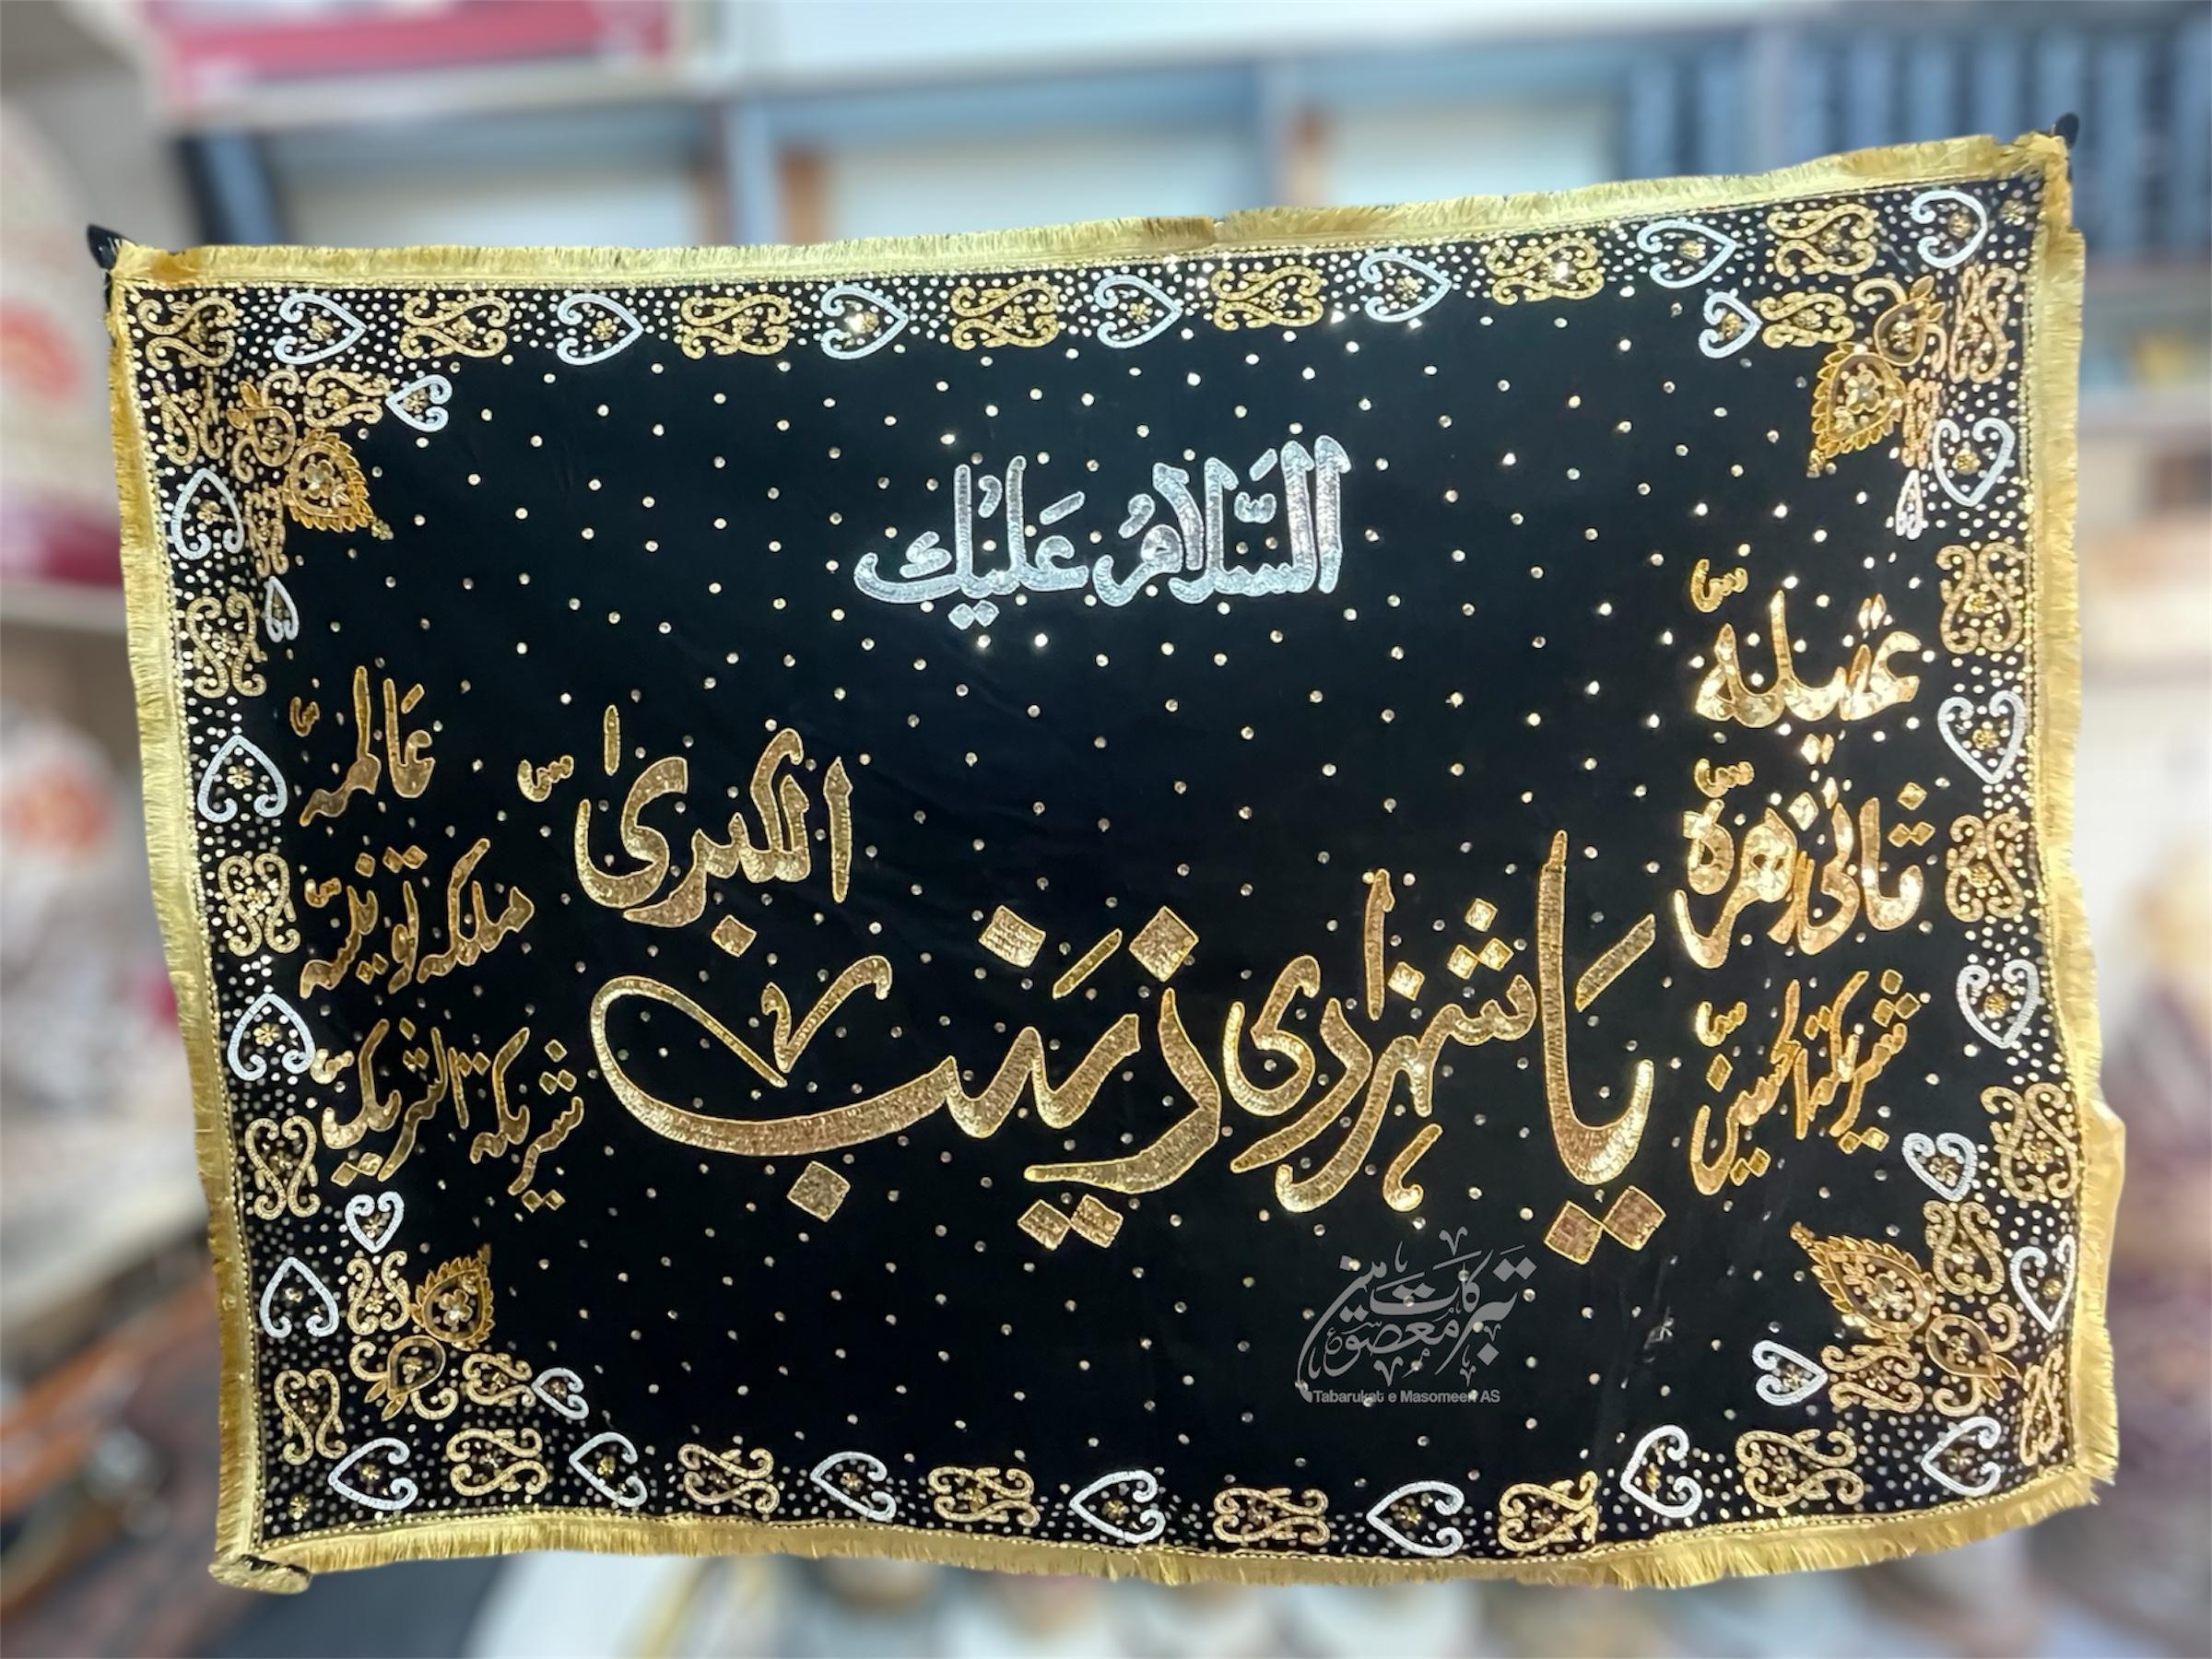 السَّلَامُ عَلَيْك
عقیلہ س
ثانی زھرہ س
شریکۃ الحسین س
یَا شہزادی زَینَب
الکبریٰ س
عَالمہ س
ملکہ
شریکۃ
تبرکات معصومین
Tabarukat e Masomeen AS